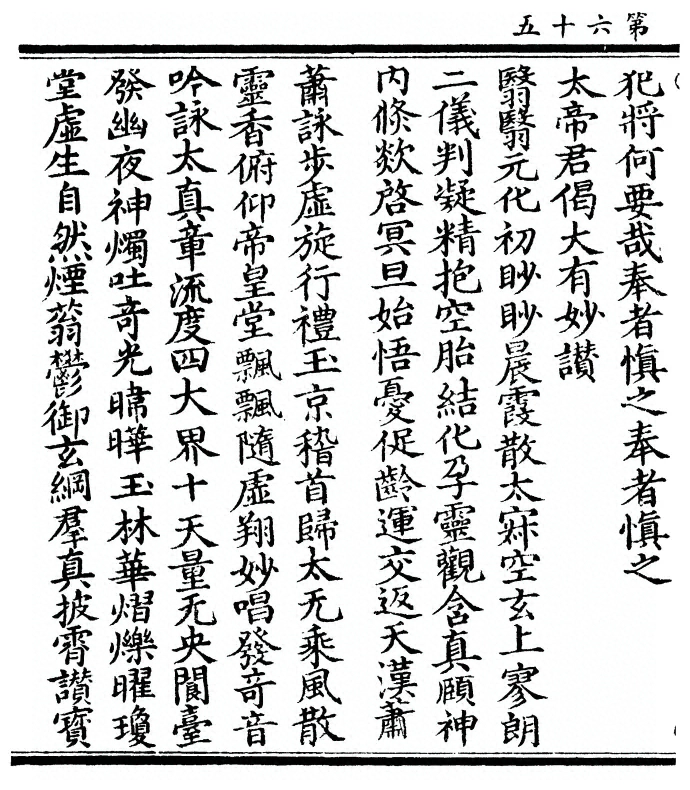 第六十五
犯將何要哉奉者慎之奉者慎之
太帝君偈大有妙讃
翳翳元化初眇眇晨霞散太寂空玄上寥朗
二儀判凝精抱空胎結化孕靈觀含真頤神
内倏欻啓冥旦始悟憂促齡運交返天漢蕭
蕭詠步虛旋行禮玉京稽首歸太无乘風散
靈香俯仰帝皇堂飄飄隨虛翔妙唱發竒音
吟詠太真章流度四大界十天量无央閬臺
發幽夜神燭吐竒光暐曄玉林華熠爍曜瓊
堂虛生自然煙蓊鬱御玄綱羣真披霄讃寳